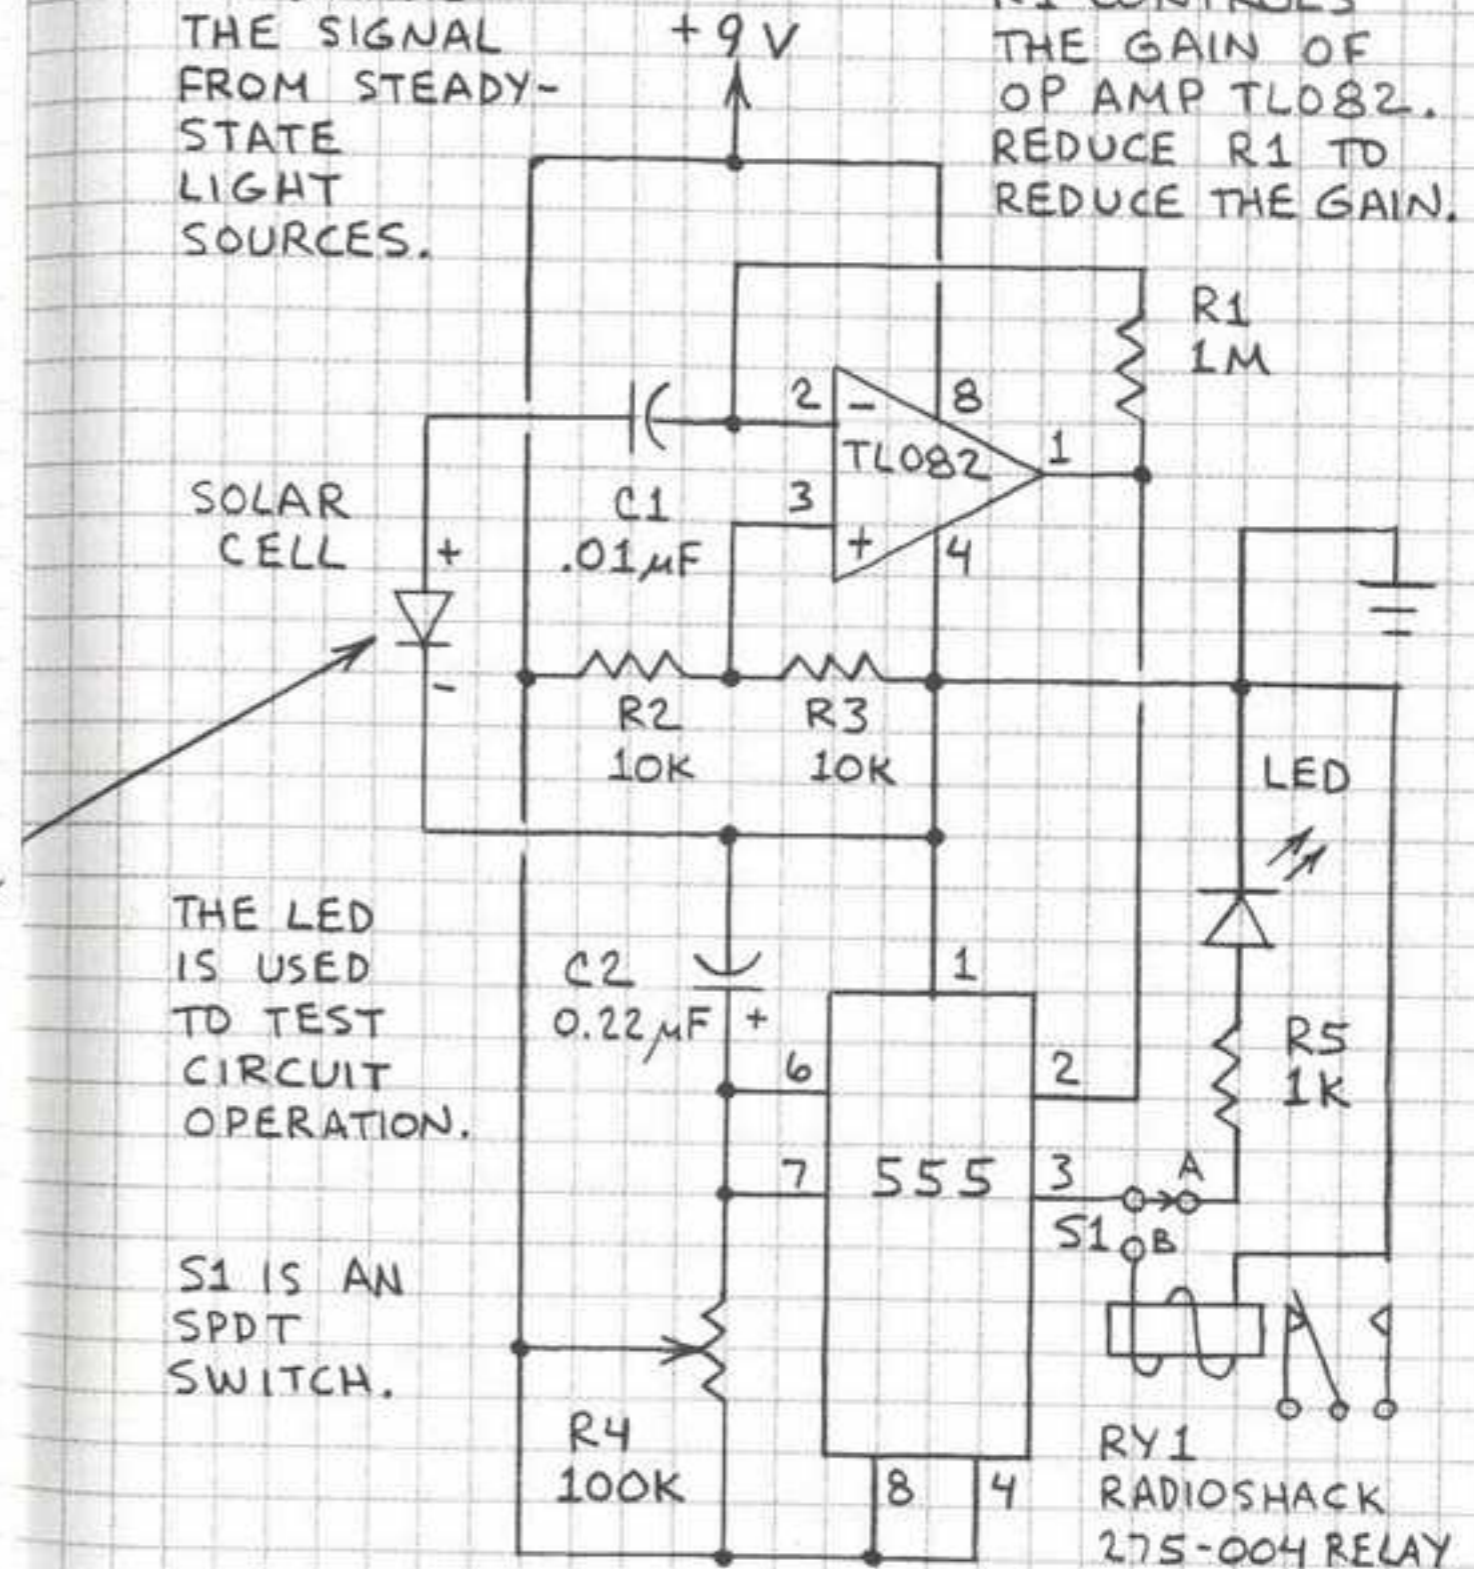 THE SIGNAL
FROM STEADY-
STATE
LIGHT
SOURCES.
+9V
CONTROLS
THE GAIN OF
OP AMP TL082.
REDUCE R1 TO
REDUCE THE GAIN.
R1
1M
2
-
8
TL082
1
3
+
4
C1
.01µF
SOLAR
CELL
+
-
R2
10K
R3
10K
LED
THE LED
IS USED
TO TEST
CIRCUIT
OPERATION.
C2
0.22µF +
1
6
2
R5
1K
7
555
3
A
S1
B
S1 IS AN
SPDT
SWITCH.
R4
100K
8
4
RY1
RADIOSHACK
275-004 RELAY